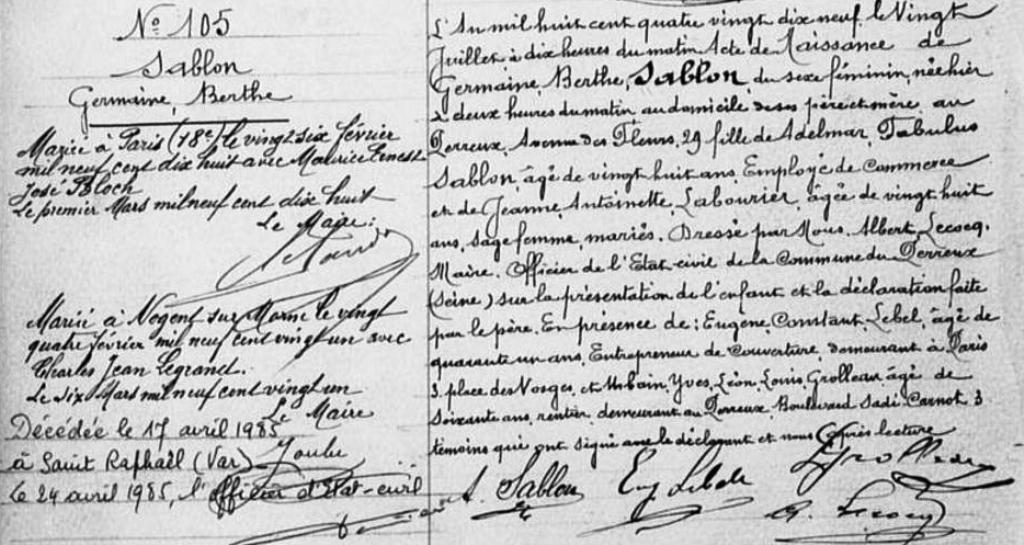 N° 105
Sablon
Germaine, Berthe
Mariée à Paris (18e) le vingt six février
mil neuf cent dix huit avec Maurice Ernest
José Bloch
Le premier Mars mil neuf cent dix huit
Le Maire:
Mariée à Nogent sur Marne le vingt
quatre février mil neuf cent vingt un avec
Charles Jean Legrand.
Le Six Mars mil neuf cent vingt un
Le Maire
Décédée le 17 avril 1985
à Saint Raphaël (Var)
Le 24 avril 1985, l'officier d'Etat-civil
L'An mil huit cent quatre vingt dix neuf, le Vingt
Juillet à dix heures du matin Acte de Naissance de
Germaine, Berthe, Sablon, du sexe féminin, née hier
à deux heures du matin au domicile de ses père et mère, au
Perreux, Avenue des Fleurs, 29 fille de Adelmar, Fabulus
Sablon, âgé de vingt huit ans, Employé de Commerce
et de Jeanne, Antoinette, Labourier, âgée de vingt huit
ans, Sage femme, mariés. Dressé par Nous, Albert, Lecocq,
Maire, Officier de l'Etat civil de la Commune du Perreux
(Seine) sur la présentation de l'enfant et la déclaration faite
par le père. En présence de: Eugène, Constant, Lebel, âgé de
quarante un ans, Entrepreneur de Couverture, demeurant à Paris
3, place des Vosges, et Urbain, Yves, Léon, Louis, Grolleau âgé de
Soixante ans, rentier demeurant au Perreux Boulevard Sadi Carnot, 3
témoins qui ont signé avec le déclarant et nous après lecture
A. Sablon Eug Lebel Grolleau
A. Lecocq